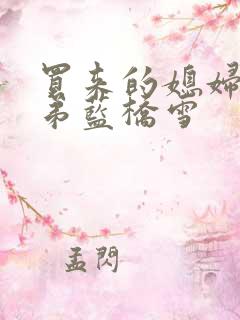 買来的媳婦
弟藍橋雪
孟閃